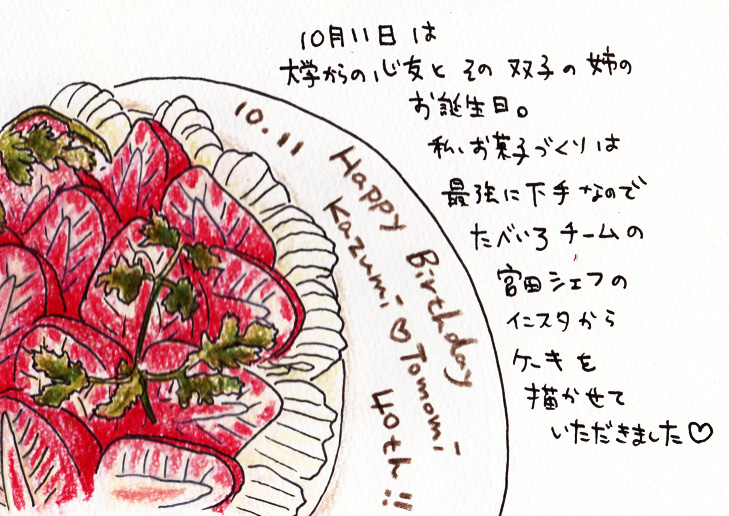 10月11日は
大学からの心友とその双子の姉の
お誕生日。
私、お菓子づくりは
最強に下手なので
たべいろチームの
宮田シェフの
インスタから
ケーキを
描かせて
いただきました♡
10.11
Happy Birthday
Kazumi♡Tomomi
40th!!